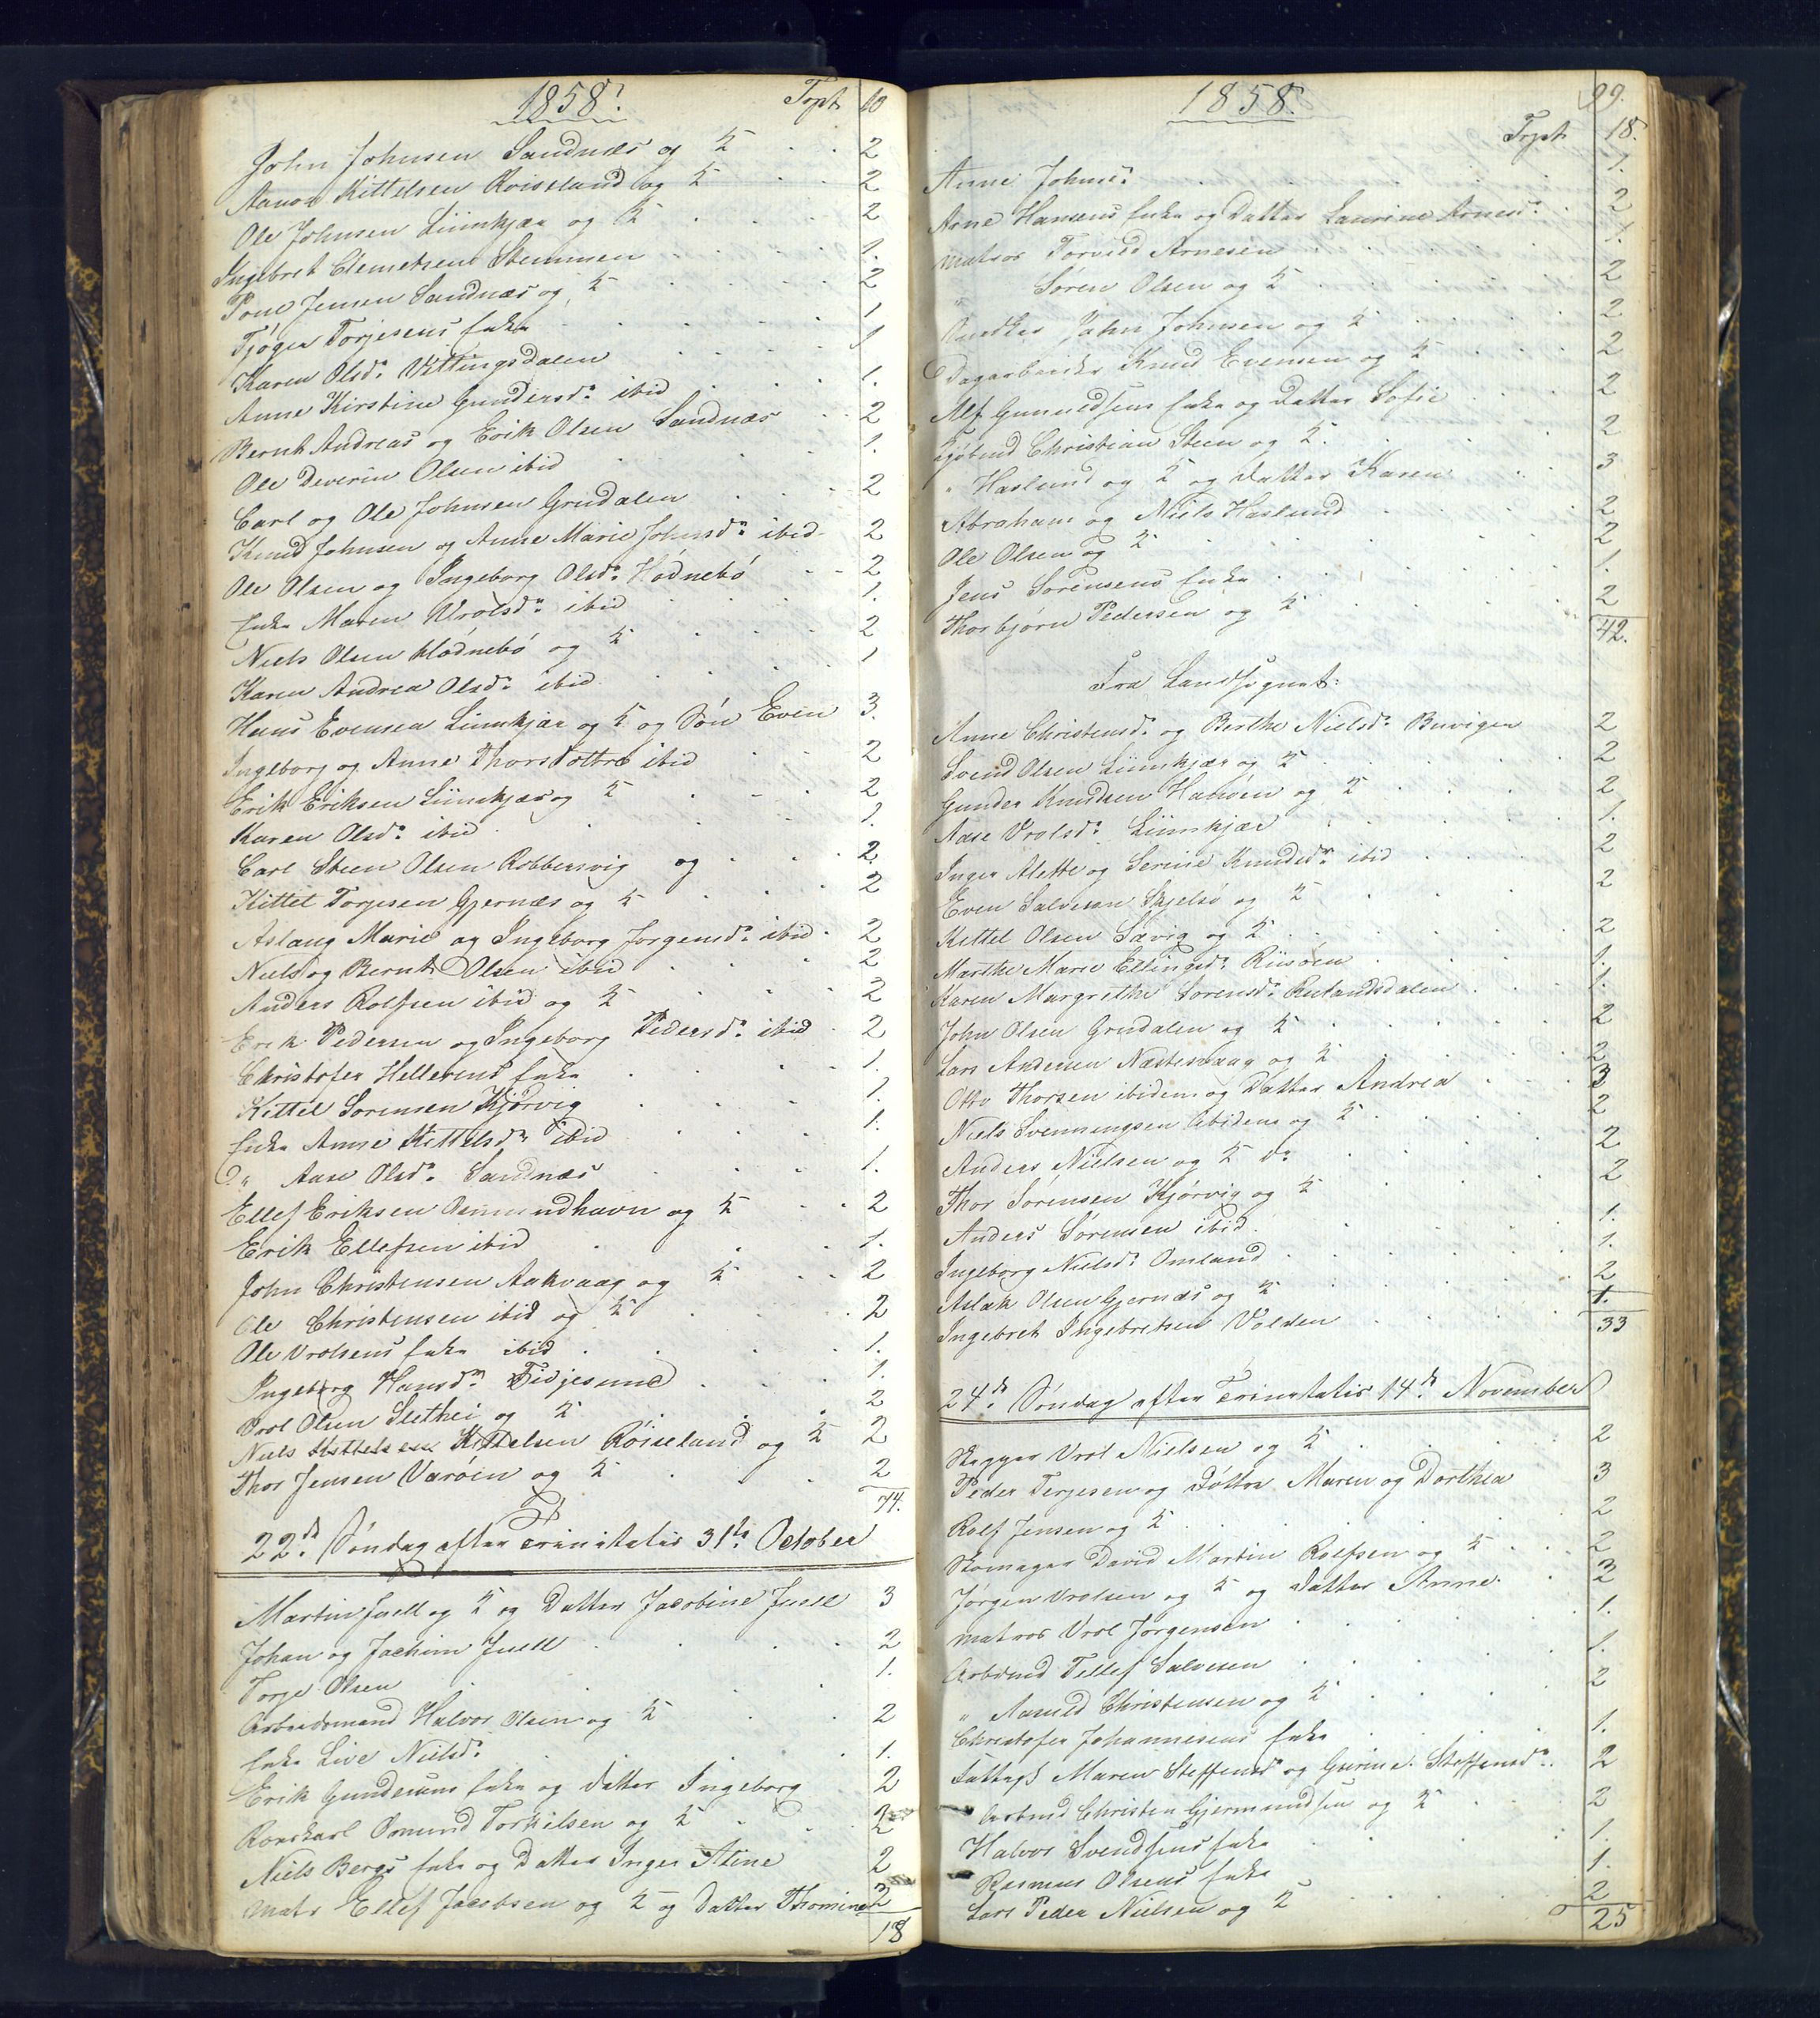 1858.
Tspt 10
John Johnsen Sandnæs og K 2
Aanon Kittelsen Röiseland og K 2
Ole Johnsen Liimkjær og K 2
Ingebret Clemetsens Stemmen 1.
Poul Jensen Sandnæs og K 2
Tjöger Torjesens Enke 1
Karen Olsdr. Vittingsdalen 1
Anne Kirstine Gundersdr. ibid 1.
Bernt Andreas og Erik Olsen Sandnæs 2
Ole Severin Olsen ibid 1.
Carl og Ole Johnsen Grudalen 2
Knud Johnsen og Anne Marie Johnsdr. ibid 2
Ole Olsen og Ingeborg Olsdr. Hödnebö 2
Enke Maren Vrolsdr. ibid 1.
Niels Olsen Hödnebö og K 2
Karen Andrea Olsdr. ibid 1
Hans Evensen Liimkjær og K og Sön Even 3.
Ingeborg og Anne Thorsdøttre ibid 2
Erik Eriksen Liimkjær og K 2
Karen Olsdr. ibid 1.
Carl Steen Olsen Robbersvig og 2
Kittel Torjesen Gjernæs og K 2
Aslaug Marie og Ingeborg Jörgensdr. ibid 2
Niels og Bernt Olsen ibid 2
Anders Rolfsen ibid og K 2
Erik Pedersen og Ingeborg Pedersdr. ibid 2
Christofer Hellesens Enke 1.
Kittel Sörensen Kjörvig 1.
Enke Anne Kittelsdr. ibid 1.
D. " Aase Olsdr. Sandnæs 1.
Ellef Eriksen Osmundhavn og K 2
Erik Ellefsen ibid 1.
John Christensen Aakvaag og K 2
Ole Christensen ibid og K 2
Ole Vrolsens Enke ibid 1.
Ingeborg Hansdr. Tidjesund 1.
Vrol Olsen Slethei og K 2
Niels Kittelsen Röiseland og K 2
Thor Jensen Varöen og K 2
74.
22de Söndag efter Trinitatis 31te October
Martin Juell og K og Datter Jacobine Juell 3
Johan og Jachim Juell 2
Torje Olsen 1.
Arbeidsmand Halvor Olsen og K 2
Enke Live Nielsdr. 1.
Erik Gundersens Enke og Datter Ingeborg 2
Rorskarl Omund Torkilsen og K 2
Niels Bergs Enke og Datter Inger Stine 2
Matr Ellef Jacobsen og K og Datter Thomine 3
18
1858.
99.
Tspt 18.
Anne Johnsdr. 1.
Arne Hansens Enke og Datter Laurine Arnesdr. 2
Matros Torvild Arnesen 1.
" Sören Olsen og K 2
Snedker John Johnsen og K 2
Dagarbeider Knud Evensen og K 2
Alf Gunuldsens Enke og Datter Sofie 2
Kjöbmd Christian Steen og K. 2
" Haslund og K og Datter Karen 3
Abraham og Niels Haslund 2
Ole Olsen og K 2
Jens Sörensens Enke 1.
Thorbjörn Pedersen og K 2
42.
Fra Landsognet:
Anne Christensdr. og Berthe Nielsdr. Buvigen 2
Svend Olsen Liimkjær og K 2
Gunder Knudsen Havöen og K 2
Aase Vrolsdr. Liimkjær 1.
Inger Alette og Serine Knudsdr. ibid 2
Even Salvesen Skjelsö og K 2
Kittel Olsen Sævig og K 2
Marthe Marie Ellingsdr. Riisöen 1.
Karen Margrethe Sörensdr. Rulandsdalen 1.
John Olsen Grudalen og K 2
Lars Andersen Næstesvaag og K 2
Otto Thorsen ibidem og Datter Andrea 3
Niels Svenningsen ibidem og K 2
Anders Nielsen og K do 2
Thor Sörensen Kjörvig og K 2
Anders Sörensen ibid 1.
Ingeborg Nielsdr. Omland 1.
Aslak Olsen Gjernæs og K 2
Ingebret Ingebretsen Volden 1.
33
24de Söndag efter Trinitatis 14de November
Skipper Vrol Nielsen og K 2
Peder Terjesen og Döttre Maren og Dorthea 3
Rolf Jensen og K 2
Skomager David Martin Rolfsen og K 2
Jörgen Vrolsen og K og Datter Anne 3
Matros Vrol Jörgensen 1.
Arbdmd Tellef Salvesen 1.
" Aanuld Christensen og K 2
Christofer Johannesens Enke 1.
Fattigl Maren Steffensdr og Gurine Steffensdr. 2
Arbmd Christen Gjermundsen og K 2
Halvor Svendsens Enke 1.
Rasmus Olsens Enke 1.
Lars Peder Nielsen og K 2
25